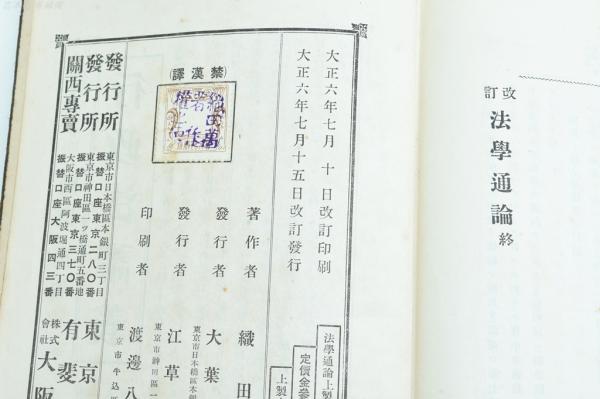 改訂 法學通論 終
大正六年七月 十日改訂印刷
大正六年七月十五日改訂發行
法學通論上製
定價金參
上製
(禁漢譯)
織田萬
著作
權之
著作者 織田
發行者 大葉
東京市日本橋區本銀
發行者 江草
東京市神田區一
印刷者 渡邊八
東京市牛込區
發行所 東京
東京市日本橋區本銀町三丁目
振替口座東京二八〇番
發行所 有斐
東京市神田區一ツ橋通町五番地
振替口座東京三七〇番
關西專賣 株式會社 大阪
大阪市西區阿波堀通四丁目
振替口座大阪四三番